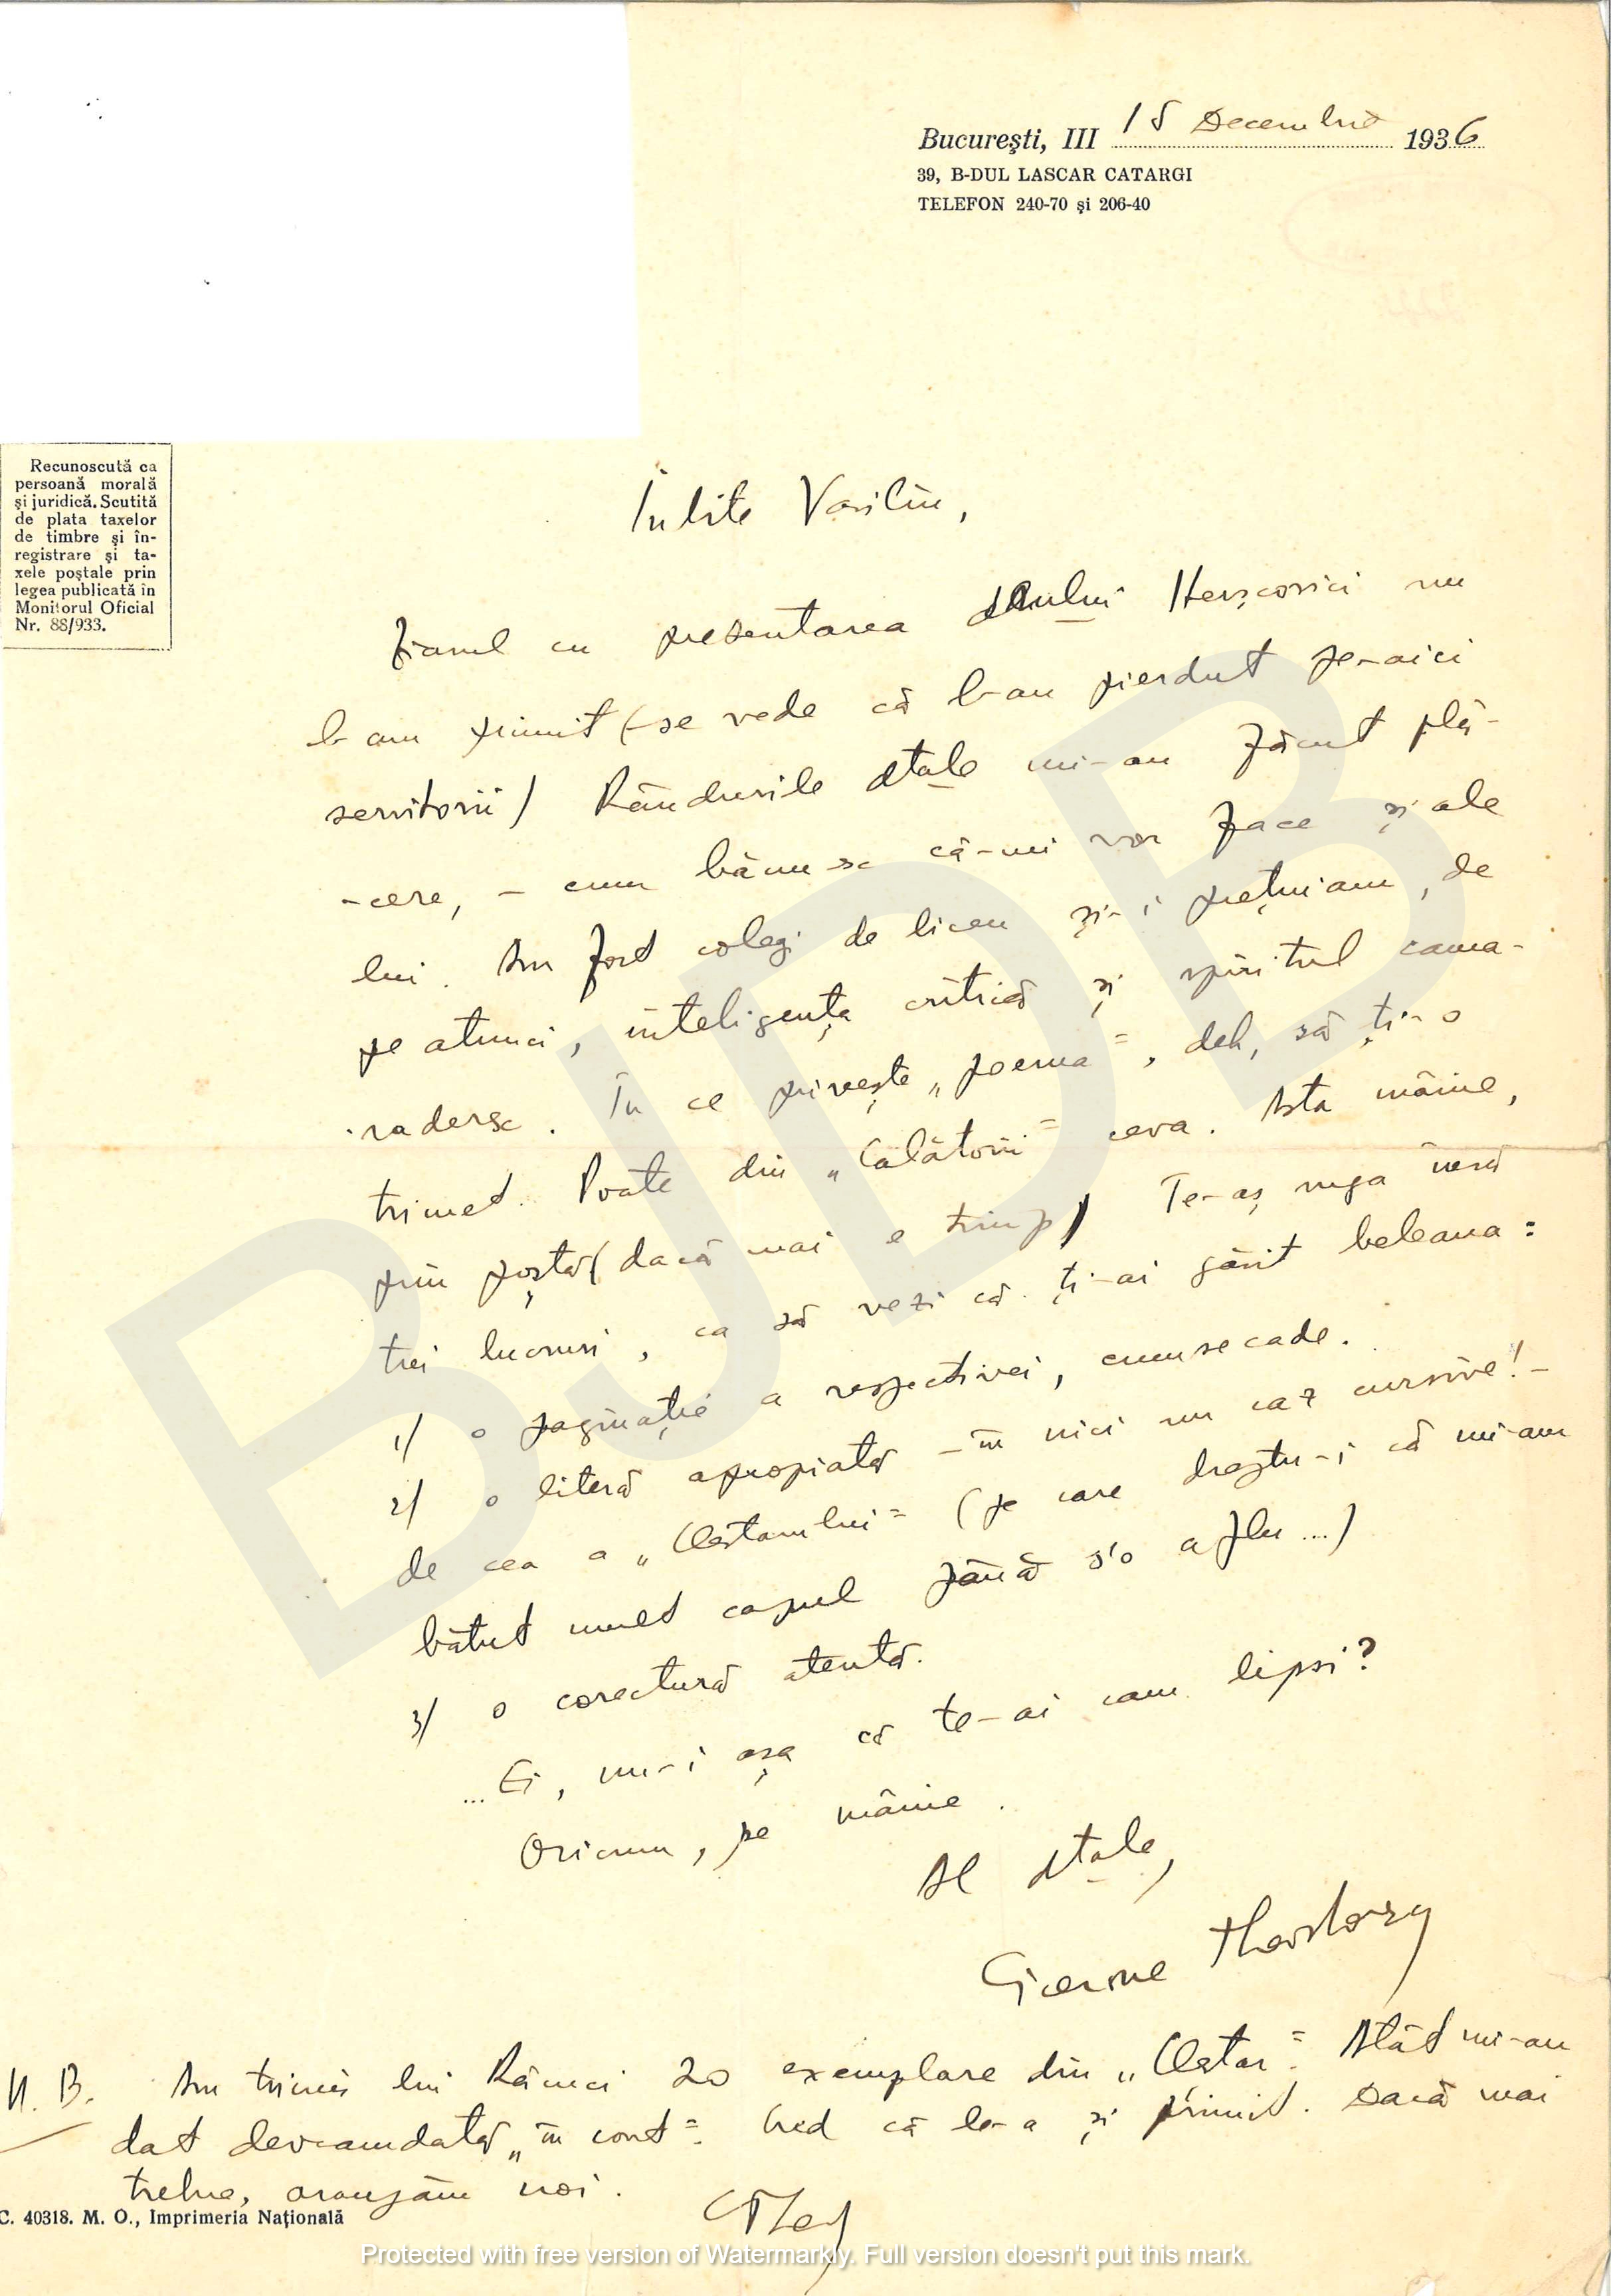 București, III 15 Decembrie 1936
39, B-DUL LASCAR CATARGI
TELEFON 240-70 și 206-40
Recunoscută ca
persoană morală
și juridică. Scutită
de plata taxelor
de timbre și în-
registrare și ta-
xele poștale prin
legea publicată în
Monitorul Oficial
Nr. 88/933.
Iubite Vasiliu,
Ziarul cu prezentarea dlului Herșcovici nu
l-am primit (-se vede că l-au pierdut pe-aici
servitorii) Rândurile dtale mi-au făcut plă-
-cere, - cum bănuesc că-mi vor face și ale
lui. Am fost colegi de liceu și-i prețuiam, de
pe atunci, inteligența critică și spiritul cama-
raderesc. În ce privește „poema", deh, să ți-o
trimet. Poate din „Călătorii" ceva. Asta mâine,
prin poștă (dacă mai e timp) Te-aș ruga însă
trei lucruri, ca să vezi că ți-ai găsit beleaua:
1) o paginație a respectivei, cumsecade.
2) o literă apropiată - în nici un caz cursive! -
de cea a „Cleștarului" (pe care dragtu-i că mi-am
bătut mult capul până s'o aflu...)
3) o corectură atentă.
... Ei, nu-i așa că te-ai cam lipsi?
Oricum, pe mâine.
Al dtale,
Cicerone Theodorescu
N. B. Am trimis lui Râmci 20 exemplare din „Cleștar". Atât mi-au
dat deocamdată „în cont". Cred că le-a și primit. Dacă mai
trebue, aranjăm noi.
CTheod
C. 40318. M. O., Imprimeria Națională
BJDB
Protected with free version of Watermarkly. Full version doesn't put this mark.